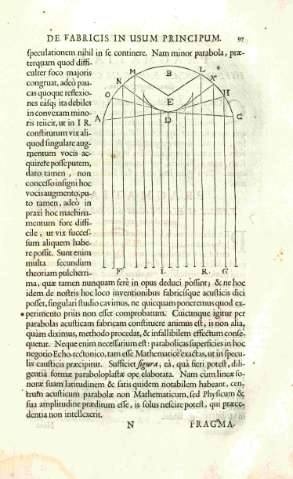 DE FABRICIS IN USUM PRINCIPUM. 97
speculationem nihil in se continere. Nam minor parabola, præ-
terquam quod diffi-
culter foco majoris
congruat, adeò pau-
cas quoque reflexio-
nes easq; ita debiles
in convexam mino-
ris reiicit, ut in I R.
constitutum vix ali-
quod singulare aug-
mentum vocis ac-
quirere posse putem,
dato tamen, non
concesso insigni hoc
vocis augmento, pu-
to tamen, adeò in
praxi hoc machina-
mentum fore diffi-
cile, ut vix succes-
sum aliquem habe-
re posset. Sunt enim
multa secundum
theoriam pulcherri-
ma, quæ tamen nunquam ferè in opus deduci possint; & ne hoc
idem de nostris hoc loco inventionibus fabricisque acusticis dici
posset, singulari studio cavimus, ne quicquam poneremus quod ex-
perimento prius non esset comprobatum. Cuicunque igitur per
parabolas acusticam fabricam construere animus est, is non alia,
quàm diximus, methodo procedat, & infallibilem effectum conse-
quetur. Neque enim necessarium est: parabolicas superficies in hoc
negotio Echo-tectonico, tam esse Mathematicè exactas, ut in specu-
lis causticis præcipitur. Sufficiet figura, eâ, quâ fieri potest, dili-
gentiâ formæ paraboloplastæ ope elaborata. Nam cum lineæ so-
noræ suam latitudinem & satis quidem notabilem habeant, cen-
trum acusticum parabolæ non Mathematicum, sed Physicum &
sua amplitudine præditum esse, is solus nescire potest, qui præce-
dentia non intellexerit.
N FRAGMA-
B
M L
N X
O E H
A D C
F I L R G